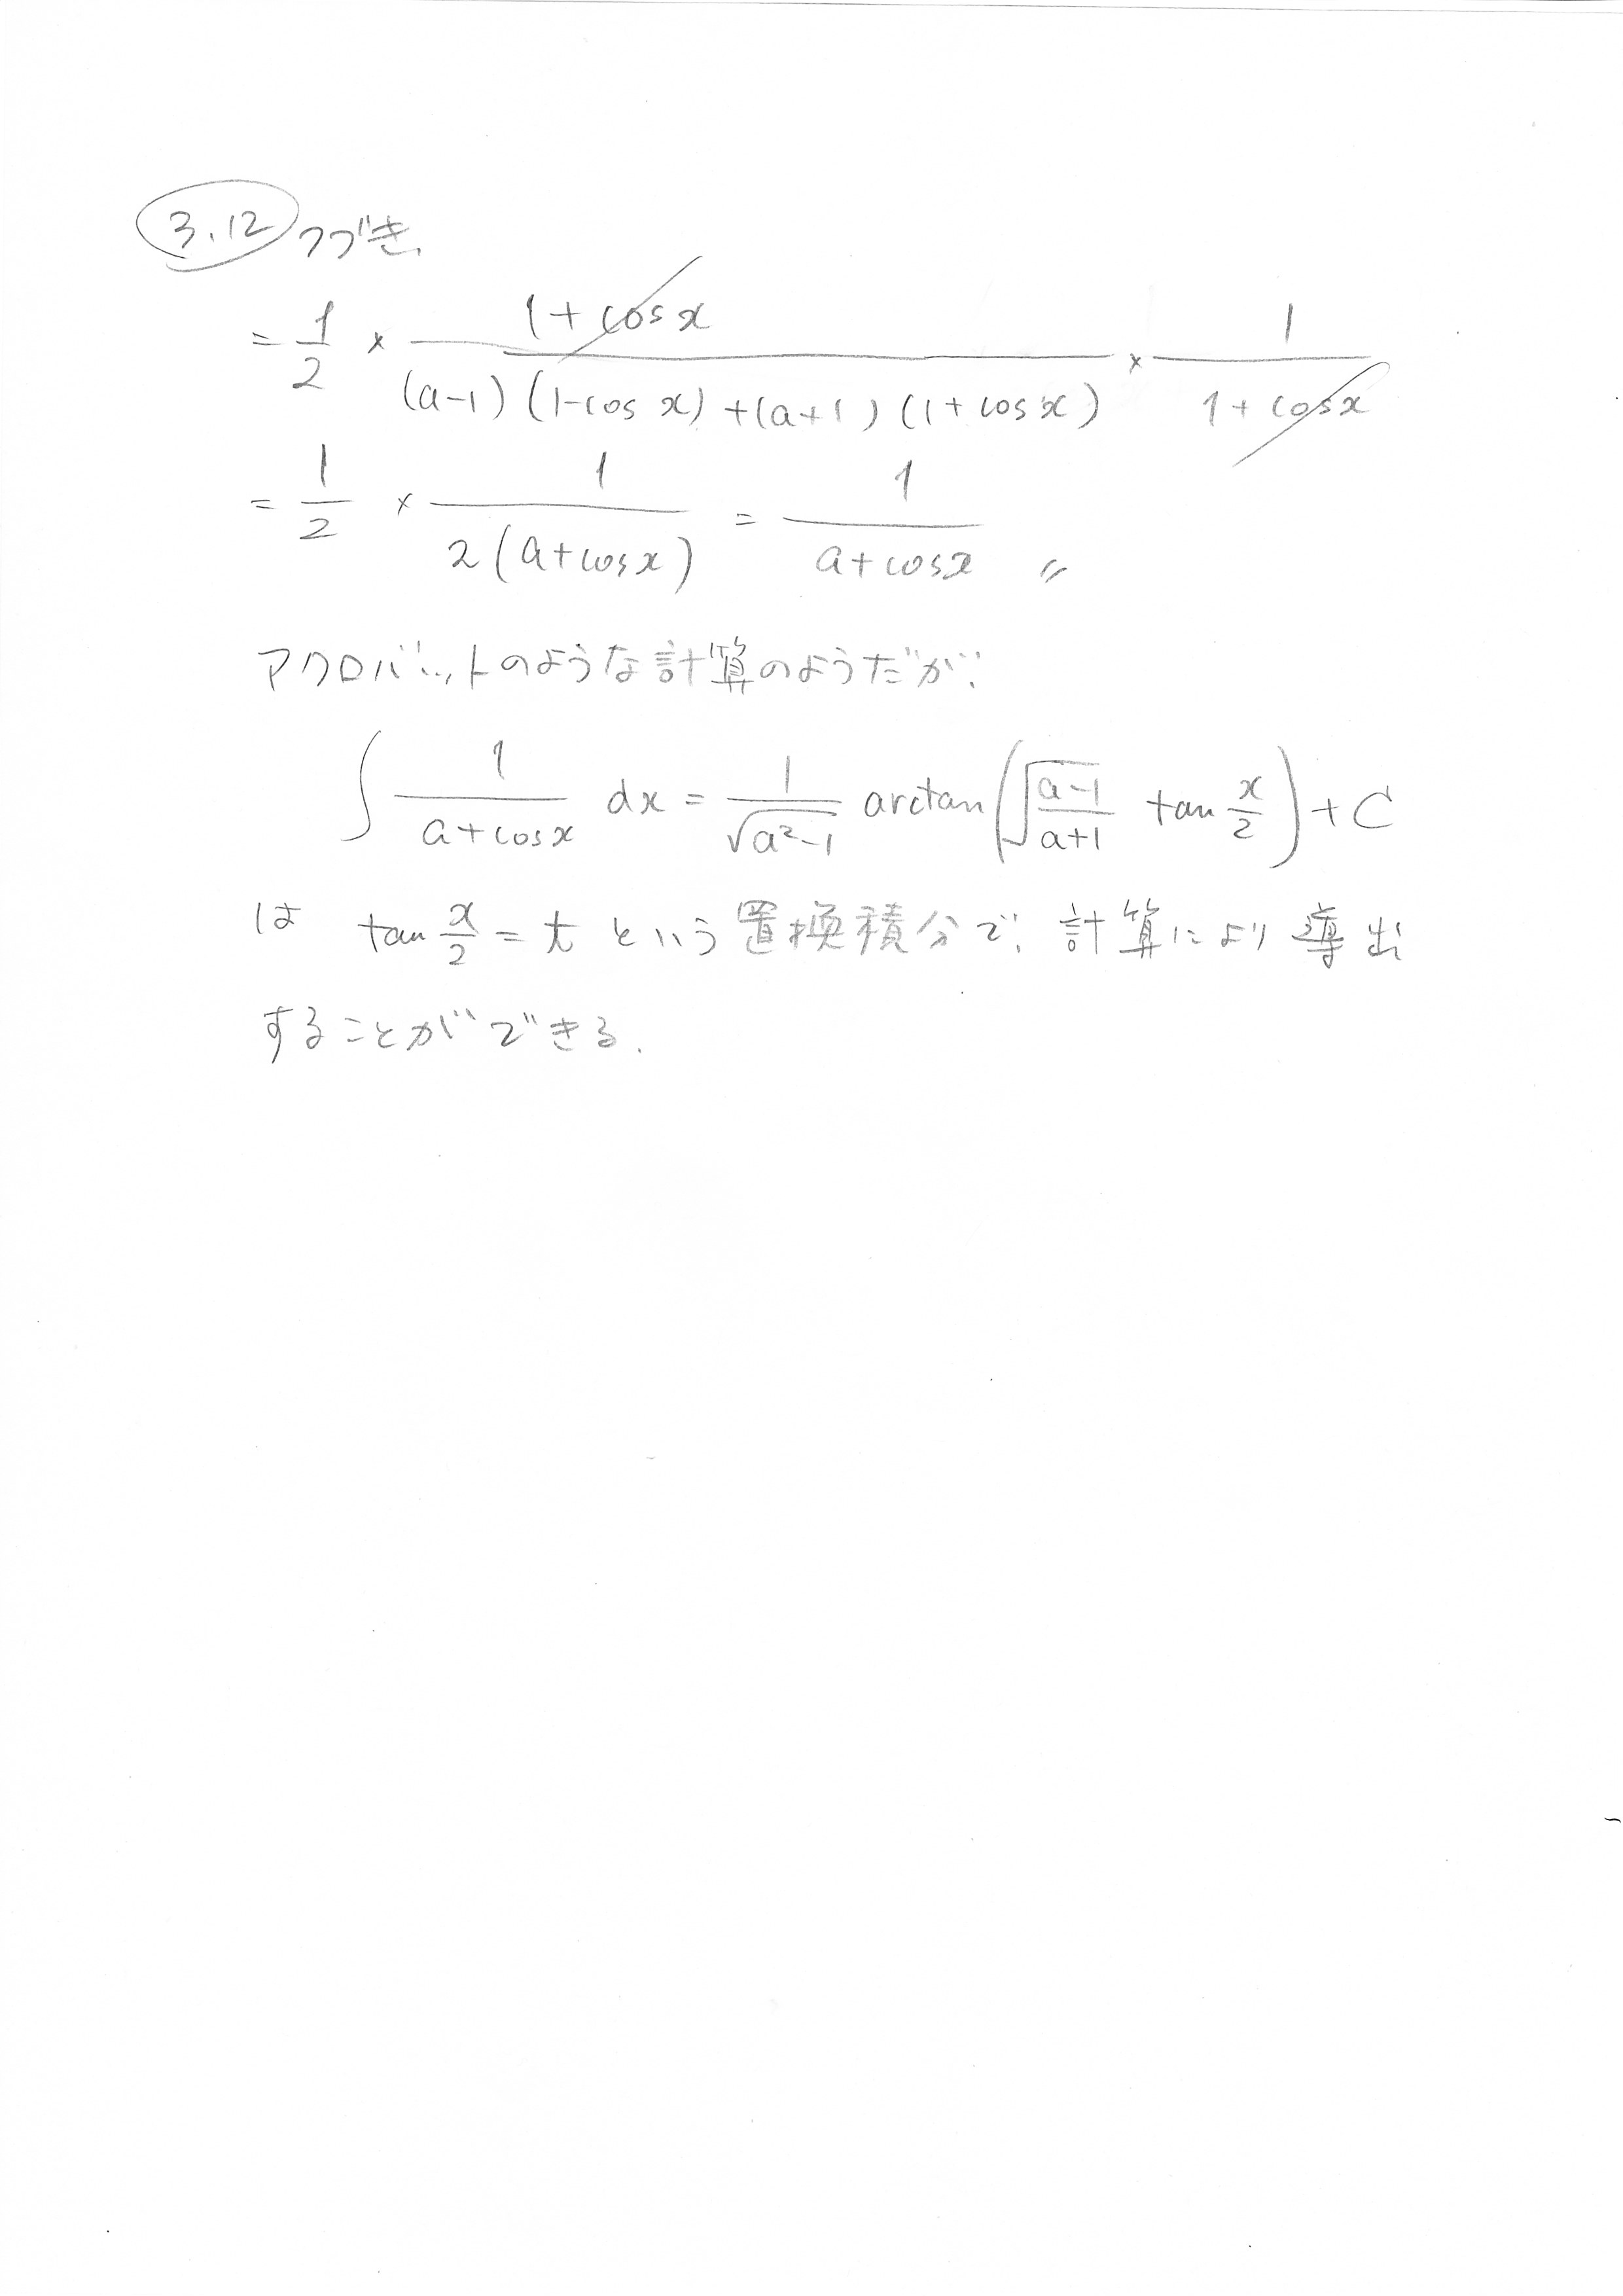 3.12 つづき
= 1/2 × (1+cos x)/((a-1)(1-cos x)+(a+1)(1+cos x)) × 1/(1+cos x)
= 1/2 × 1/(2(a+cos x)) = 1/(a+cos x) 〃
アクロバットのような計算のようだが、
∫ 1/(a+cos x) dx = 1/√(a²-1) arctan(√((a-1)/(a+1)) tan x/2) + C
は tan x/2 = t という置換積分で、計算により導出
することができる.